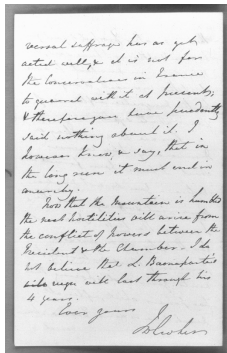 versal suffrage has as yet
acted well, & it is not for
the Conservatives in France
to quarrel with it at present;
& therefore you have prudently
said nothing about it. I
however know, & say, that in
the long run it must end in
anarchy.
Now that the Mountain is humbled
the next hostilities will arise from
the conflict of powers between the
President & the Chamber. I do
not believe that L Buonaparte's
will last through his
4 years.
Ever yours